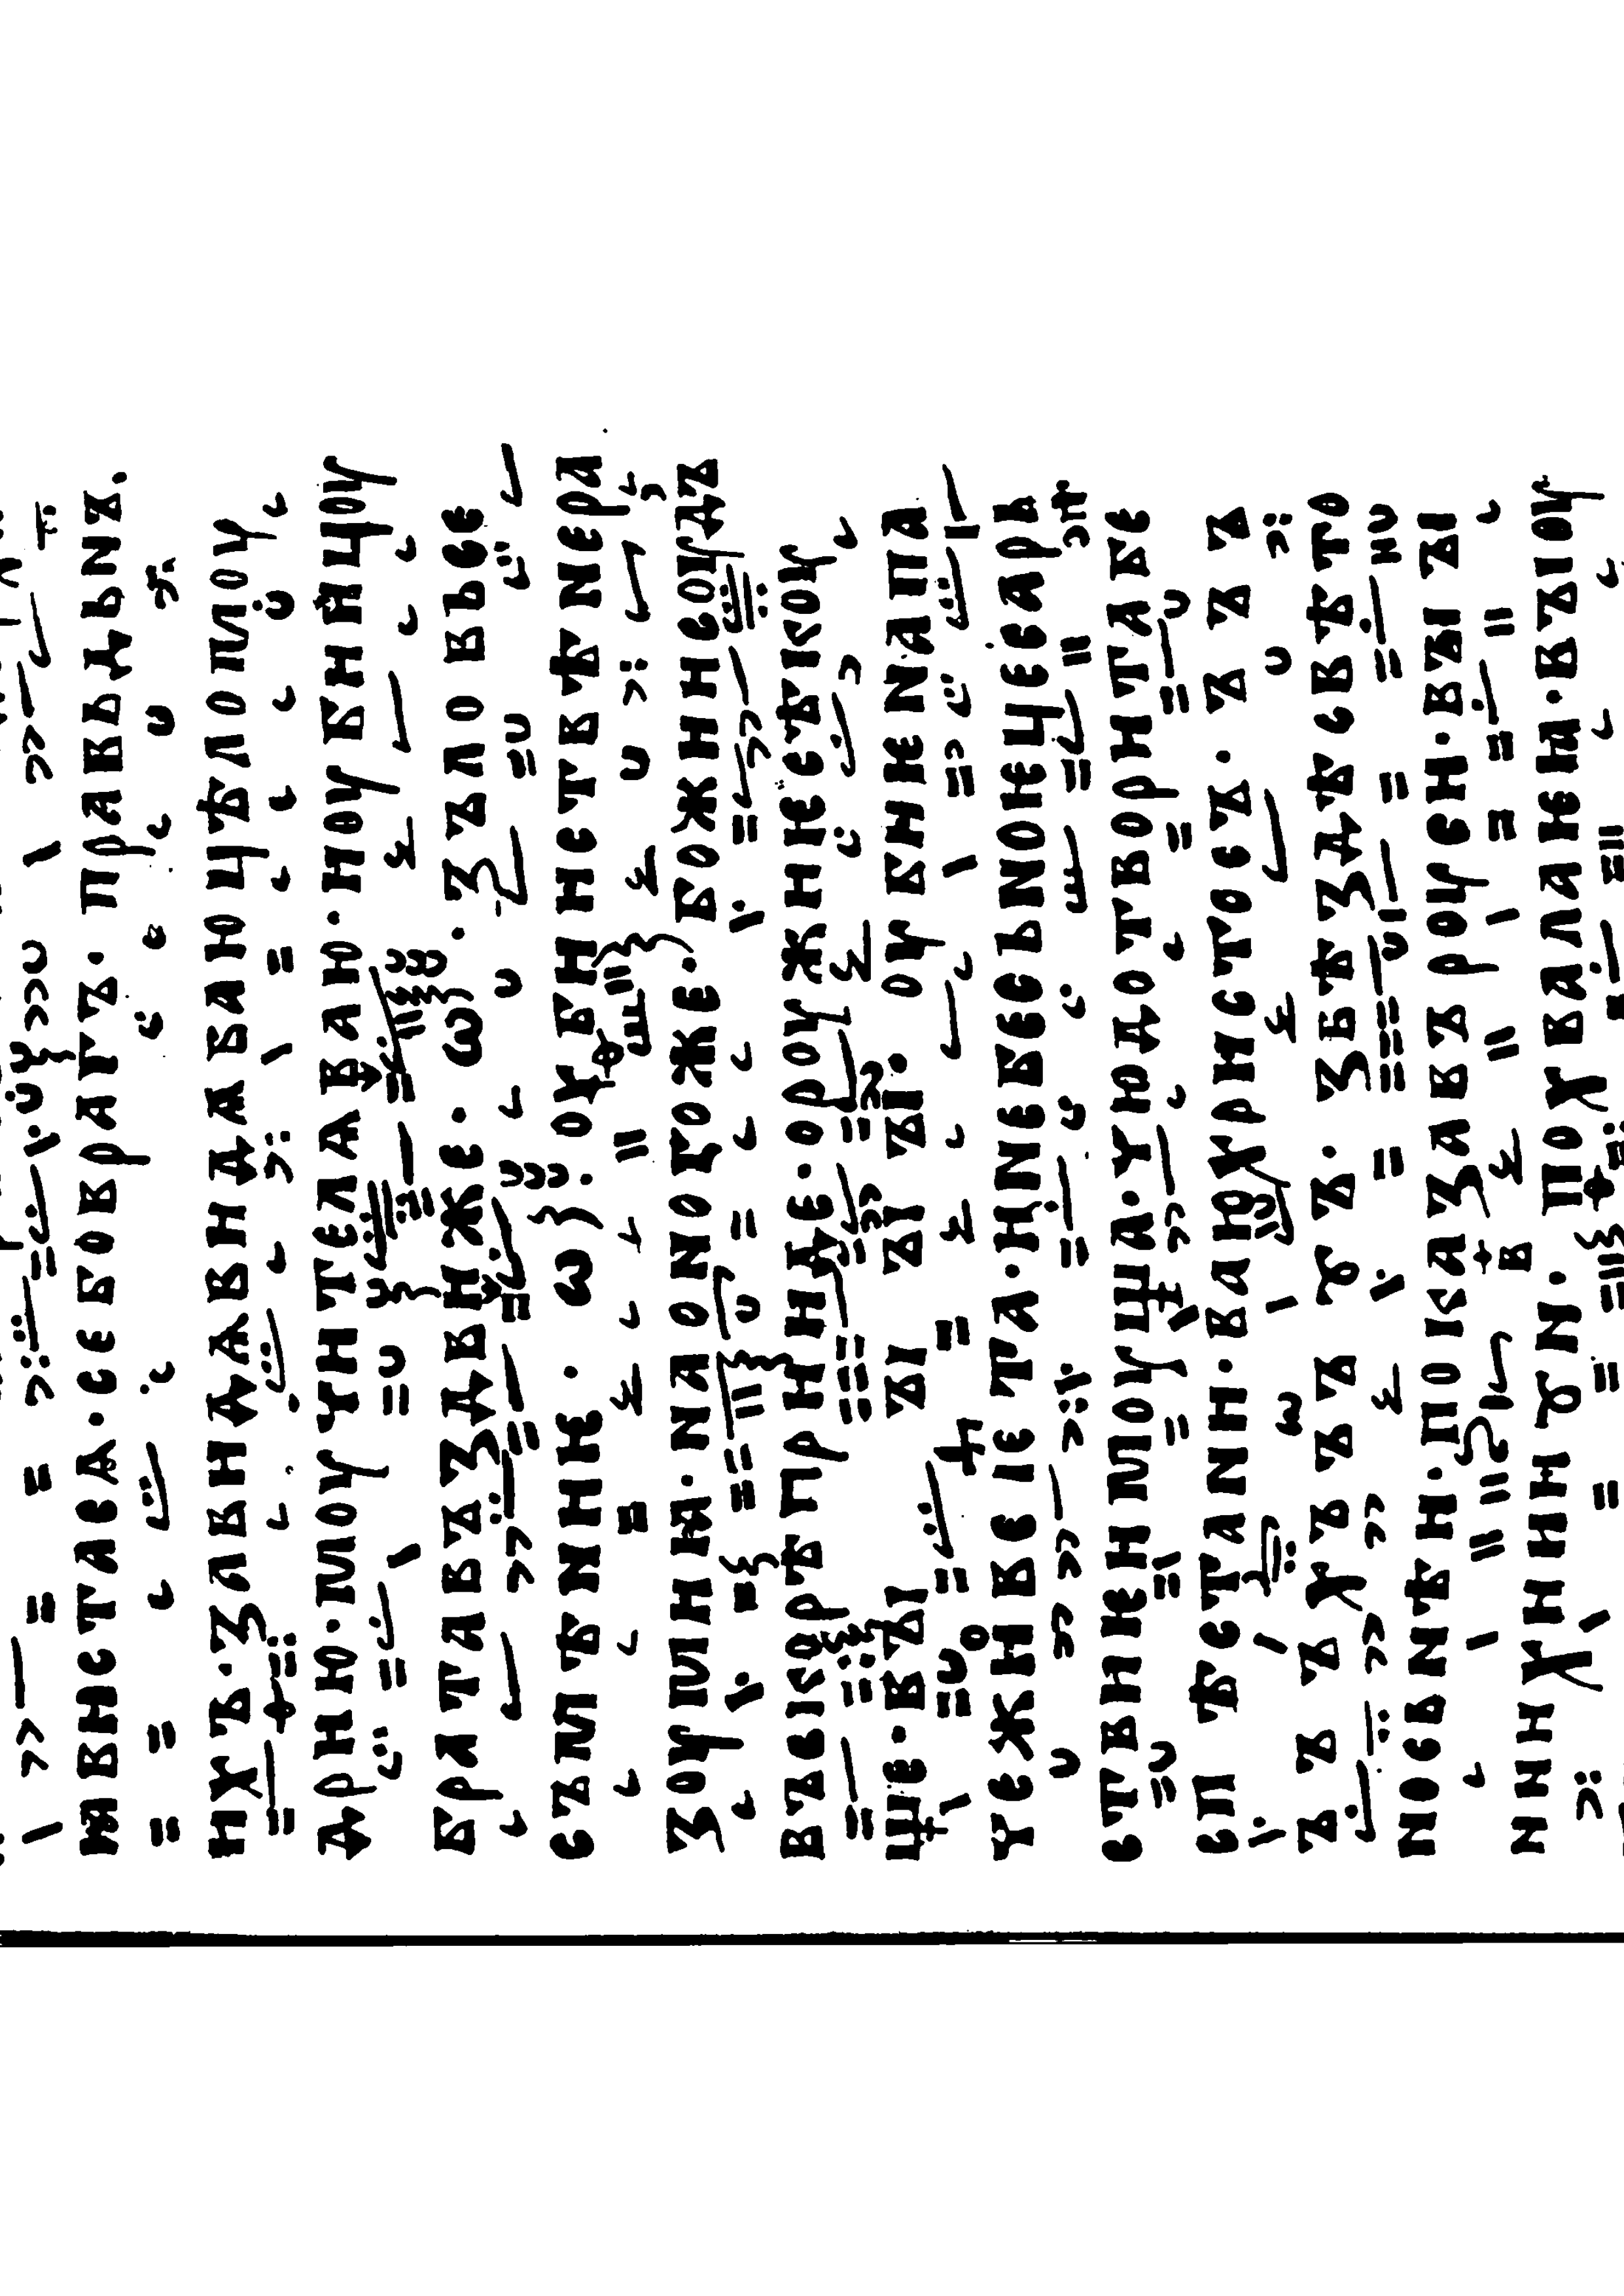 ꙗвистасѧ·себовратъ·правьдьнъ.
ихъ·ꙁълвидавидаваюцѣломоу
дрию·моучителѧваю·ноубииноу
братавъꙁдвиже·ѡ)·ꙁъловьсе
съмѣние·ѡ)·оубиистѣнера
ꙁоумиꙗ·наоногоже·)божиисоудъ
въскорѣприиде·ороужиесѣкоу
ще·въі ъі ъі ъі·оубиенапа
чеживеіета·инебесьноецесарь
ствиемоуща·чюдотворитабе
сп ѣстани·ваюхристосъ·ъ ъ ъ
ъ ъ ъ хъ ъ ъ ꙋ ъ·ꙁвѣꙁдѣсвѣто
носьнѣи·покаꙁавъ роуси·въі ъі
нии хнин ꙋн·похвалѧи·въіоу